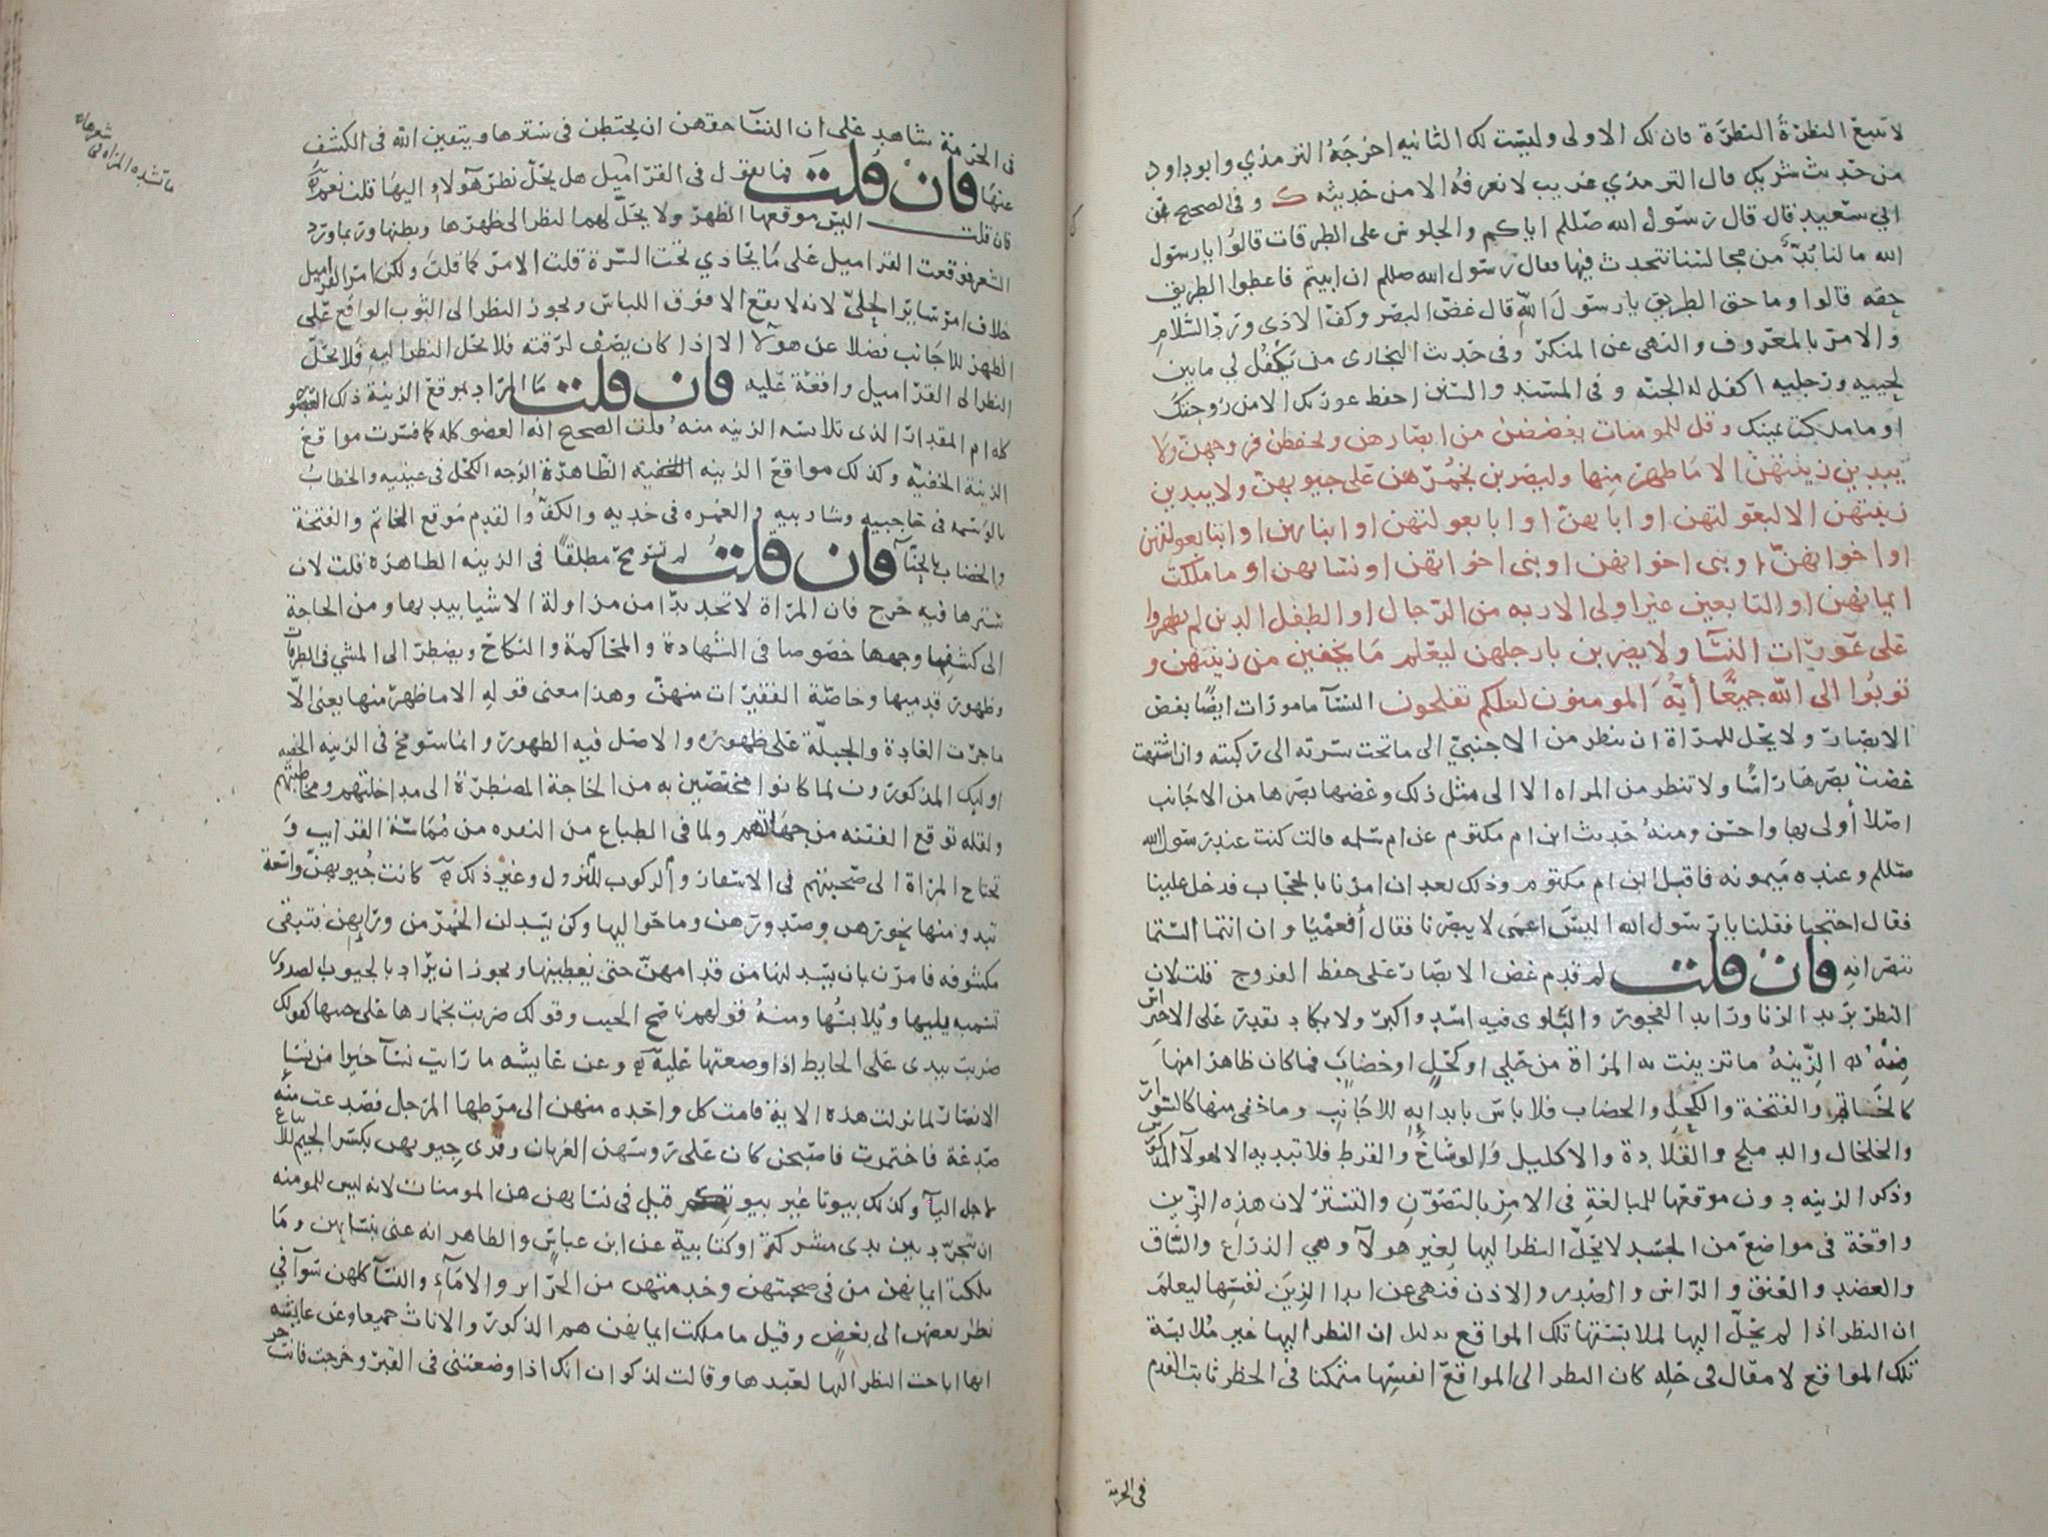 لا تتبع النظرة النظرة فان لك الاولى وليست لك الثانيه اخرجه الترمذي وابو داود
من حديث شريك قال الترمذي غريب لا نعرفه الا من حديثه ك وفى الصحيح عن
ابي سعيد قال قال رسول الله صللم اياكم والجلوس على الطرقات قالوا يا رسول
الله ما لنا بد من مجالسنا نتحدث فيها فقال رسول الله صللم ان ابيتم فاعطوا الطريق
حقه قالوا وما حق الطريق يا رسول الله قال غض البصر وكف الاذى ورد السلام
والامر بالمعروف والنهى عن المنكر وفى حديث البخارى من يكفل لي ما بين
لحييه ورجليه اكفل له الجنه وفى المسند والسنن احفظ عورتك الا من زوجتك
او ما ملكت يمينك وقل للمومنات يغضضن من ابصارهن ويحفظن فروجهن ولا
يبدين زينتهن الا ما ظهر منها وليضربن بخمرهن على جيوبهن ولا يبدين
زينتهن الا لبعولتهن او ابايهن او ابا بعولتهن او ابنايهن او ابنا بعولتهن
او اخوانهن او بنى اخوانهن او بنى اخواتهن او نسايهن او ما ملكت
ايمانهن او التابعين غير اولى الاربه من الرجال او الطفل الذين لم يظهروا
على عورات النسا ولا يضربن بارجلهن ليعلم ما يخفين من زينتهن و
توبوا الي الله جميعا أيه المومنون لعلكم تفلحون النسآ مامورات ايضا بغض
الابصار ولا يحل للمراة ان تنظر من الاجنبي الى ما تحت سرته الى ركبته وان اشتهت
غضت بصرها راسا ولا تنظر من المراه الا الى مثل ذلك وغضها بصرها من الاجانب
اصلا أولى بها واحسن ومنه حديث ابن ام مكتوم عن ام سلمه قالت كنت عند رسول الله
صللم وعنده ميمونه فاقبل ابن ام مكتوم وذلك بعد ان امرنا بالحجاب فدخل علينا
فقال احتجبا فقلنا يا رسول الله اليس اعمى لا يبصرنا فقال أفعميا وان انتما الستما
تبصرانه فان قلت لم قدم غض الابصار على حفظ الفروج قلت لان
النظر بريد الزنا ورايد الفجور والبلوى فيه اشد واكثر ولا يكاد يقدر على الاحتراس
منه الزينه ما تزينت به المراة من حلي او كحل او خضاب فما كان ظاهرا منها
كالخاتم والفتخة والكحل والخضاب فلا باس بابدايه للاجانب وما خفى منها كالسوار
والخلخال والدملج والقلادة والاكليل والوشاح والقرط فلا تبديه الا لهولآ المذكورين
وذكر الزينه دون موقعها للمبالغة فى الامر بالتصون والتستر لان هذه الزين
واقعة فى مواضع من الجسد لا يحل النظر اليها لغير هولآ وهي الذراع والساق
والعضد والعنق والراس والصدر والاذن فنهى عن ابدا الزين نفسها ليعلم
ان النظر اذا لم يحل اليها لملابستها تلك المواقع بدليل ان النظر اليها غير ملابسة
تلك المواقع لا مقال فى حله كان النظر الى المواقع انفسها متمكنا فى الحظر ثابت القدم
فى الحرمة
فى الحرمة شاهد على ان النسآ حقهن ان يحتطن فى سترها ويتقين الله فى الكشف
عنها فان قلت فما تقول فى القراميل هل يحل نظر هولاء اليها قلت نعم
فان قلت اليس موقعها الظهر ولا يحل لهما النظر الى ظهرها وبطنها وربما ورد
الشعر فوقعت القراميل على ما يحاذي تحت السرة قلت الامر كما قلت ولكن امر القراميل
خلاف امر ساير الحلي لانه لا يقع الا فوق اللباس ويجوز النظر الى الثوب الواقع على
الظهر للاجانب فضلا عن هولآ الا اذا كان يصف لرقته فلا يحل النظر اليه فلا يحل
النظر الى القراميل واقعة عليه فان قلت ما المراد بموقع الزينة ذلك العضو
كله ام المقدار الذى تلابسه الزينه منه قلت الصحيح انه العضو كله كما فسرت مواقع
الزينة الخفيه وكذلك مواقع الزينه الظاهرة الوجه الكحل فى عينيه والخضاب
بالوسمه فى حاجبيه وشاربيه والغمره فى خديه والكف والقدم موقع الخاتم والفتخة
والخضاب بالحنآ فان قلت لم تسومح مطلقا فى الزينه الظاهره قلت لان
سترها فيه حرج فان المراة لا تجد بدا من مزاولة الاشيا بيديها ومن الحاجة
الى كشف وجهها خصوصا فى الشهادة والمحاكمة والنكاح وتضطر الى المشي فى الطرقات
وظهور قدميها وخاصة الفقيرات منهن وهذا معنى قوله الا ما ظهر منها يعنى الا
ما جرت العادة والجبلة على ظهوره والاصل فيه الظهور وانما سومح فى الزينه الخفيه
اوليك المذكورون لما كانوا مختصين به من الحاجة المضطرة الى مداخلتهم ومخالطتهم
ولقله توقع الفتنه من جهاتهم ولما فى الطباع من النفره من مماسة القرايب و
تحتاج المراة الى صحبتهم فى الاسفار والركوب للنزول وغير ذلك كانت جيوبهن واسعة
تبدو منها نحورهن وصدورهن وما حواليها وكن يسدلن الخمر من ورايهن فتبقى
مكشوفه فامرن بان يسدلنها من قدامهن حتى يغطينها ويجوز ان يراد بالجيوب الصدور
تسميه بما يليها ويلابسها ومنه قولهم ناصح الجيب وقولك ضربت بخمارها على جيبها كقولك
ضربت بيدى على الحايط اذا وضعتها عليه وعن عايشه ما رايت نسآ خيرا من نسا
الانصار لما نزلت هذه الاية قامت كل واحده منهن الى مرطها المرحل فصدعت منه
صدعة فاختمرت فاصبحن كان على روسهن الغربان وقرى جيوبهن بكسر الجيم
لاجل اليآ وكذلك بيوتا غير بيوتكم قيل فى نسايهن هن المومنات لانه ليس للمومنه
ان تتجرد بين يدى مشركة او كتابية عن ابن عباس والظاهر انه عنى بنسايهن وما
ملكت ايمانهن من فى صحبتهن وخدمتهن من الحراير والامآء والنسآ كلهن سوآ في
نظر بعضهن الى بعض وقيل ما ملكت ايمانهن هم الذكور والاناث جميعا وعن عايشه
انها اباحت النظر اليها لعبدها وقالت لذكوان انك اذا وضعتنى فى القبر وخرجت فانت حر
ما تشده المراه في شعرها